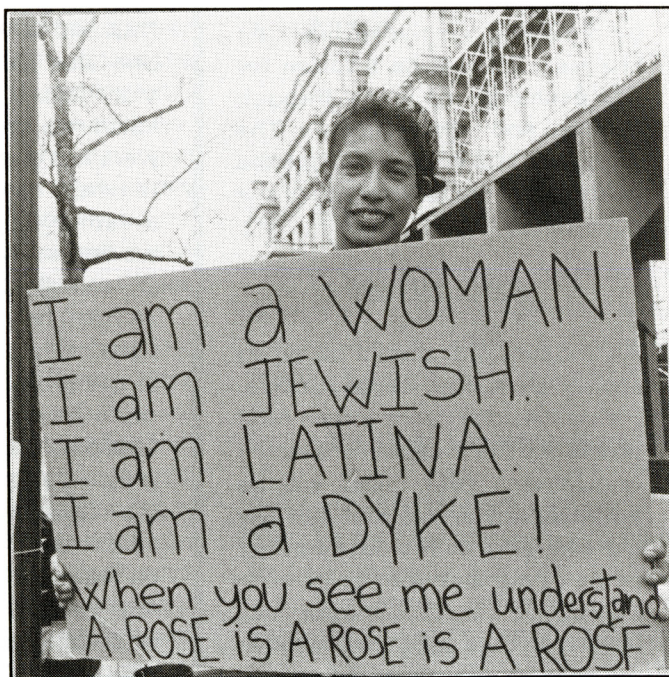 I am a WOMAN.
I am JEWISH.
I am LATINA.
I am a DYKE!
When you see me understand
A ROSE is A ROSE is A ROSE